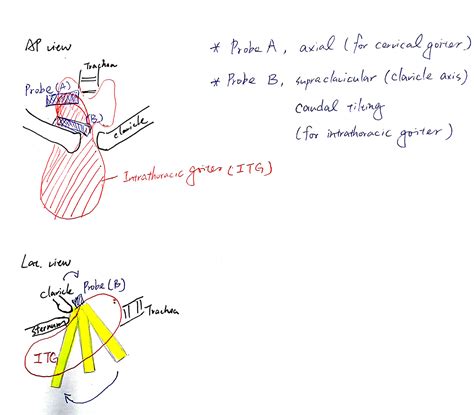 AP view
Trachea
Probe (A)
(B)
clavicle
Intrathoracic goiter (ITG)
* Probe A, axial (for cervical goiter)
* Probe B, supraclavicular (clavicle axis)
caudal tilting
(for intrathoracic goiter)
Lat. view
clavicle
Probe (B)
sternum
Trachea
ITG